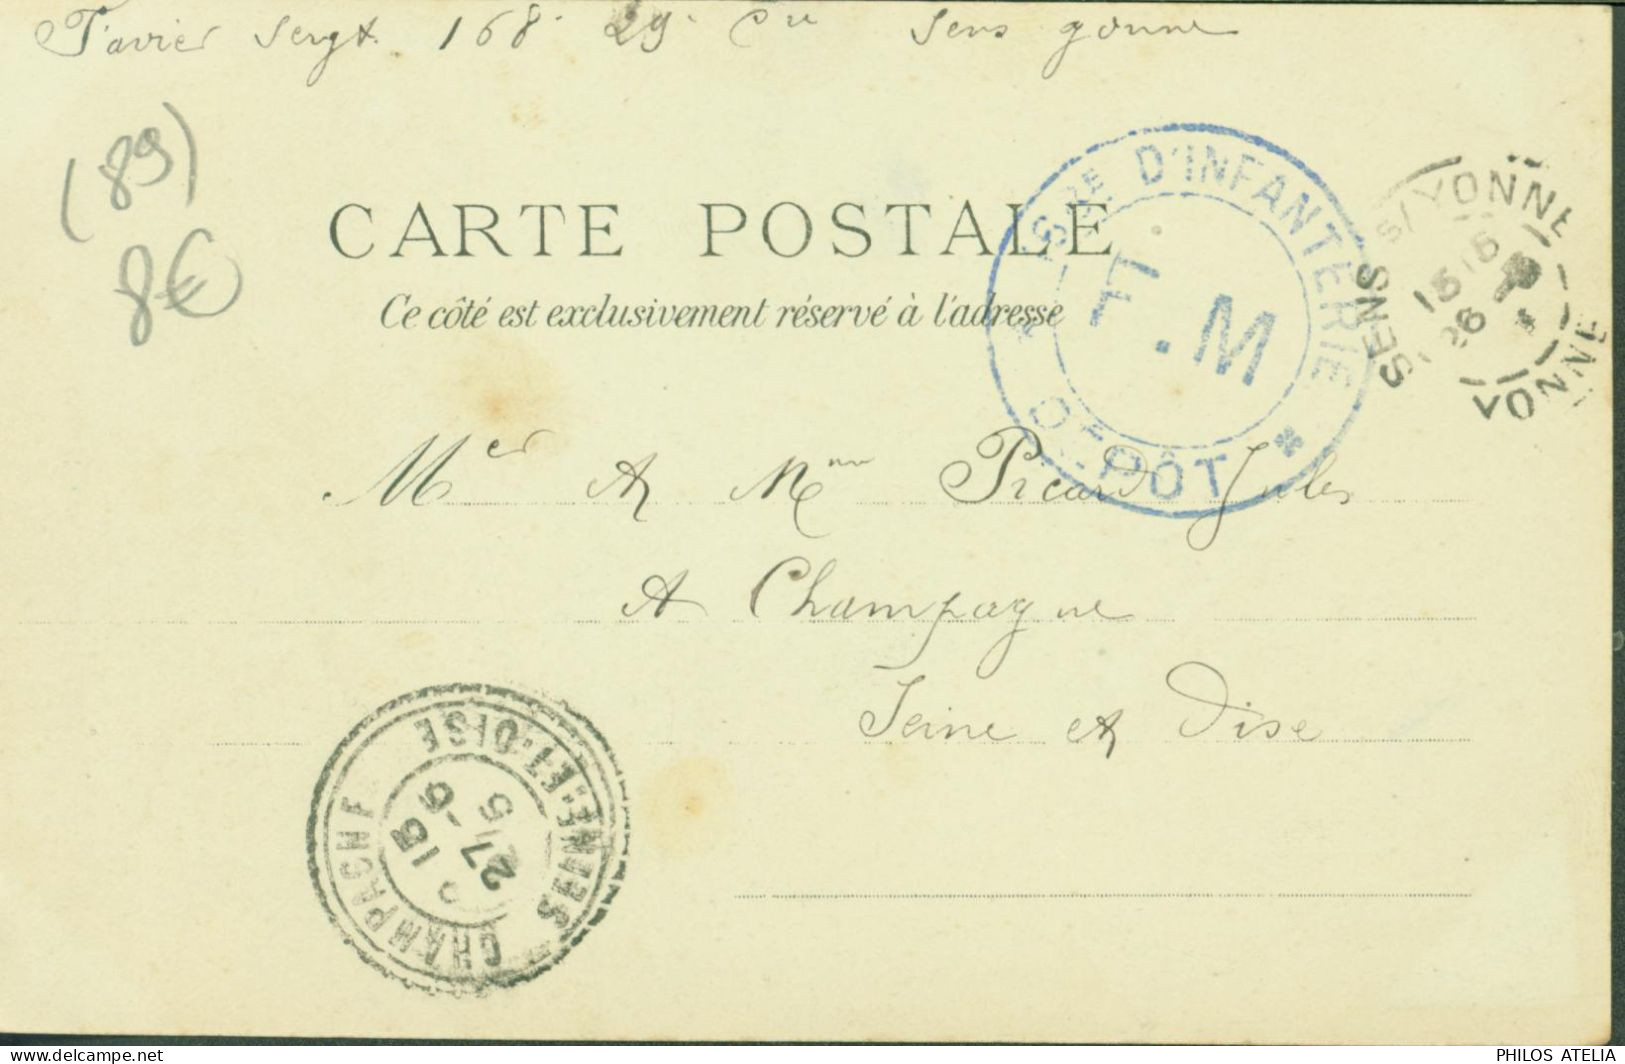 Tavier Sergt 168. 29. Cie Sens yonne
(89)
8€
CARTE POSTALE
Ce côté est exclusivement réservé à l'adresse
D'INFANTERIE
F.
.M
* DÉPÔT *
SENS S/YONNE
YONNE
26
Mer et Mme Picard Jules
A Champagne
Seine et Oise
CHAMPAGNE
SEINE-ET-OISE
15
27 -5
15
PHILOS ATELIA